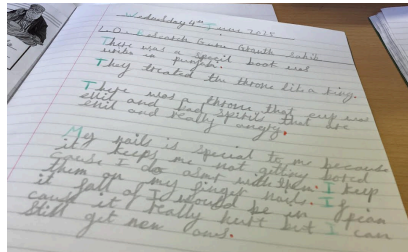 Wednesday 4th June 2025
L.O. Research Guru Granth Sahib
There was a special book wet
write in punjba.
They treated the throne like a king.
There was a throne that
evil and bad spirits that are
evil and really angry.
My nails is special to me because
it keeps me not getting bored
cause I do with them. I keep
them on my finger nails. If
it fall of I would be in pian
cause it really hurt but I can
still get new ows.